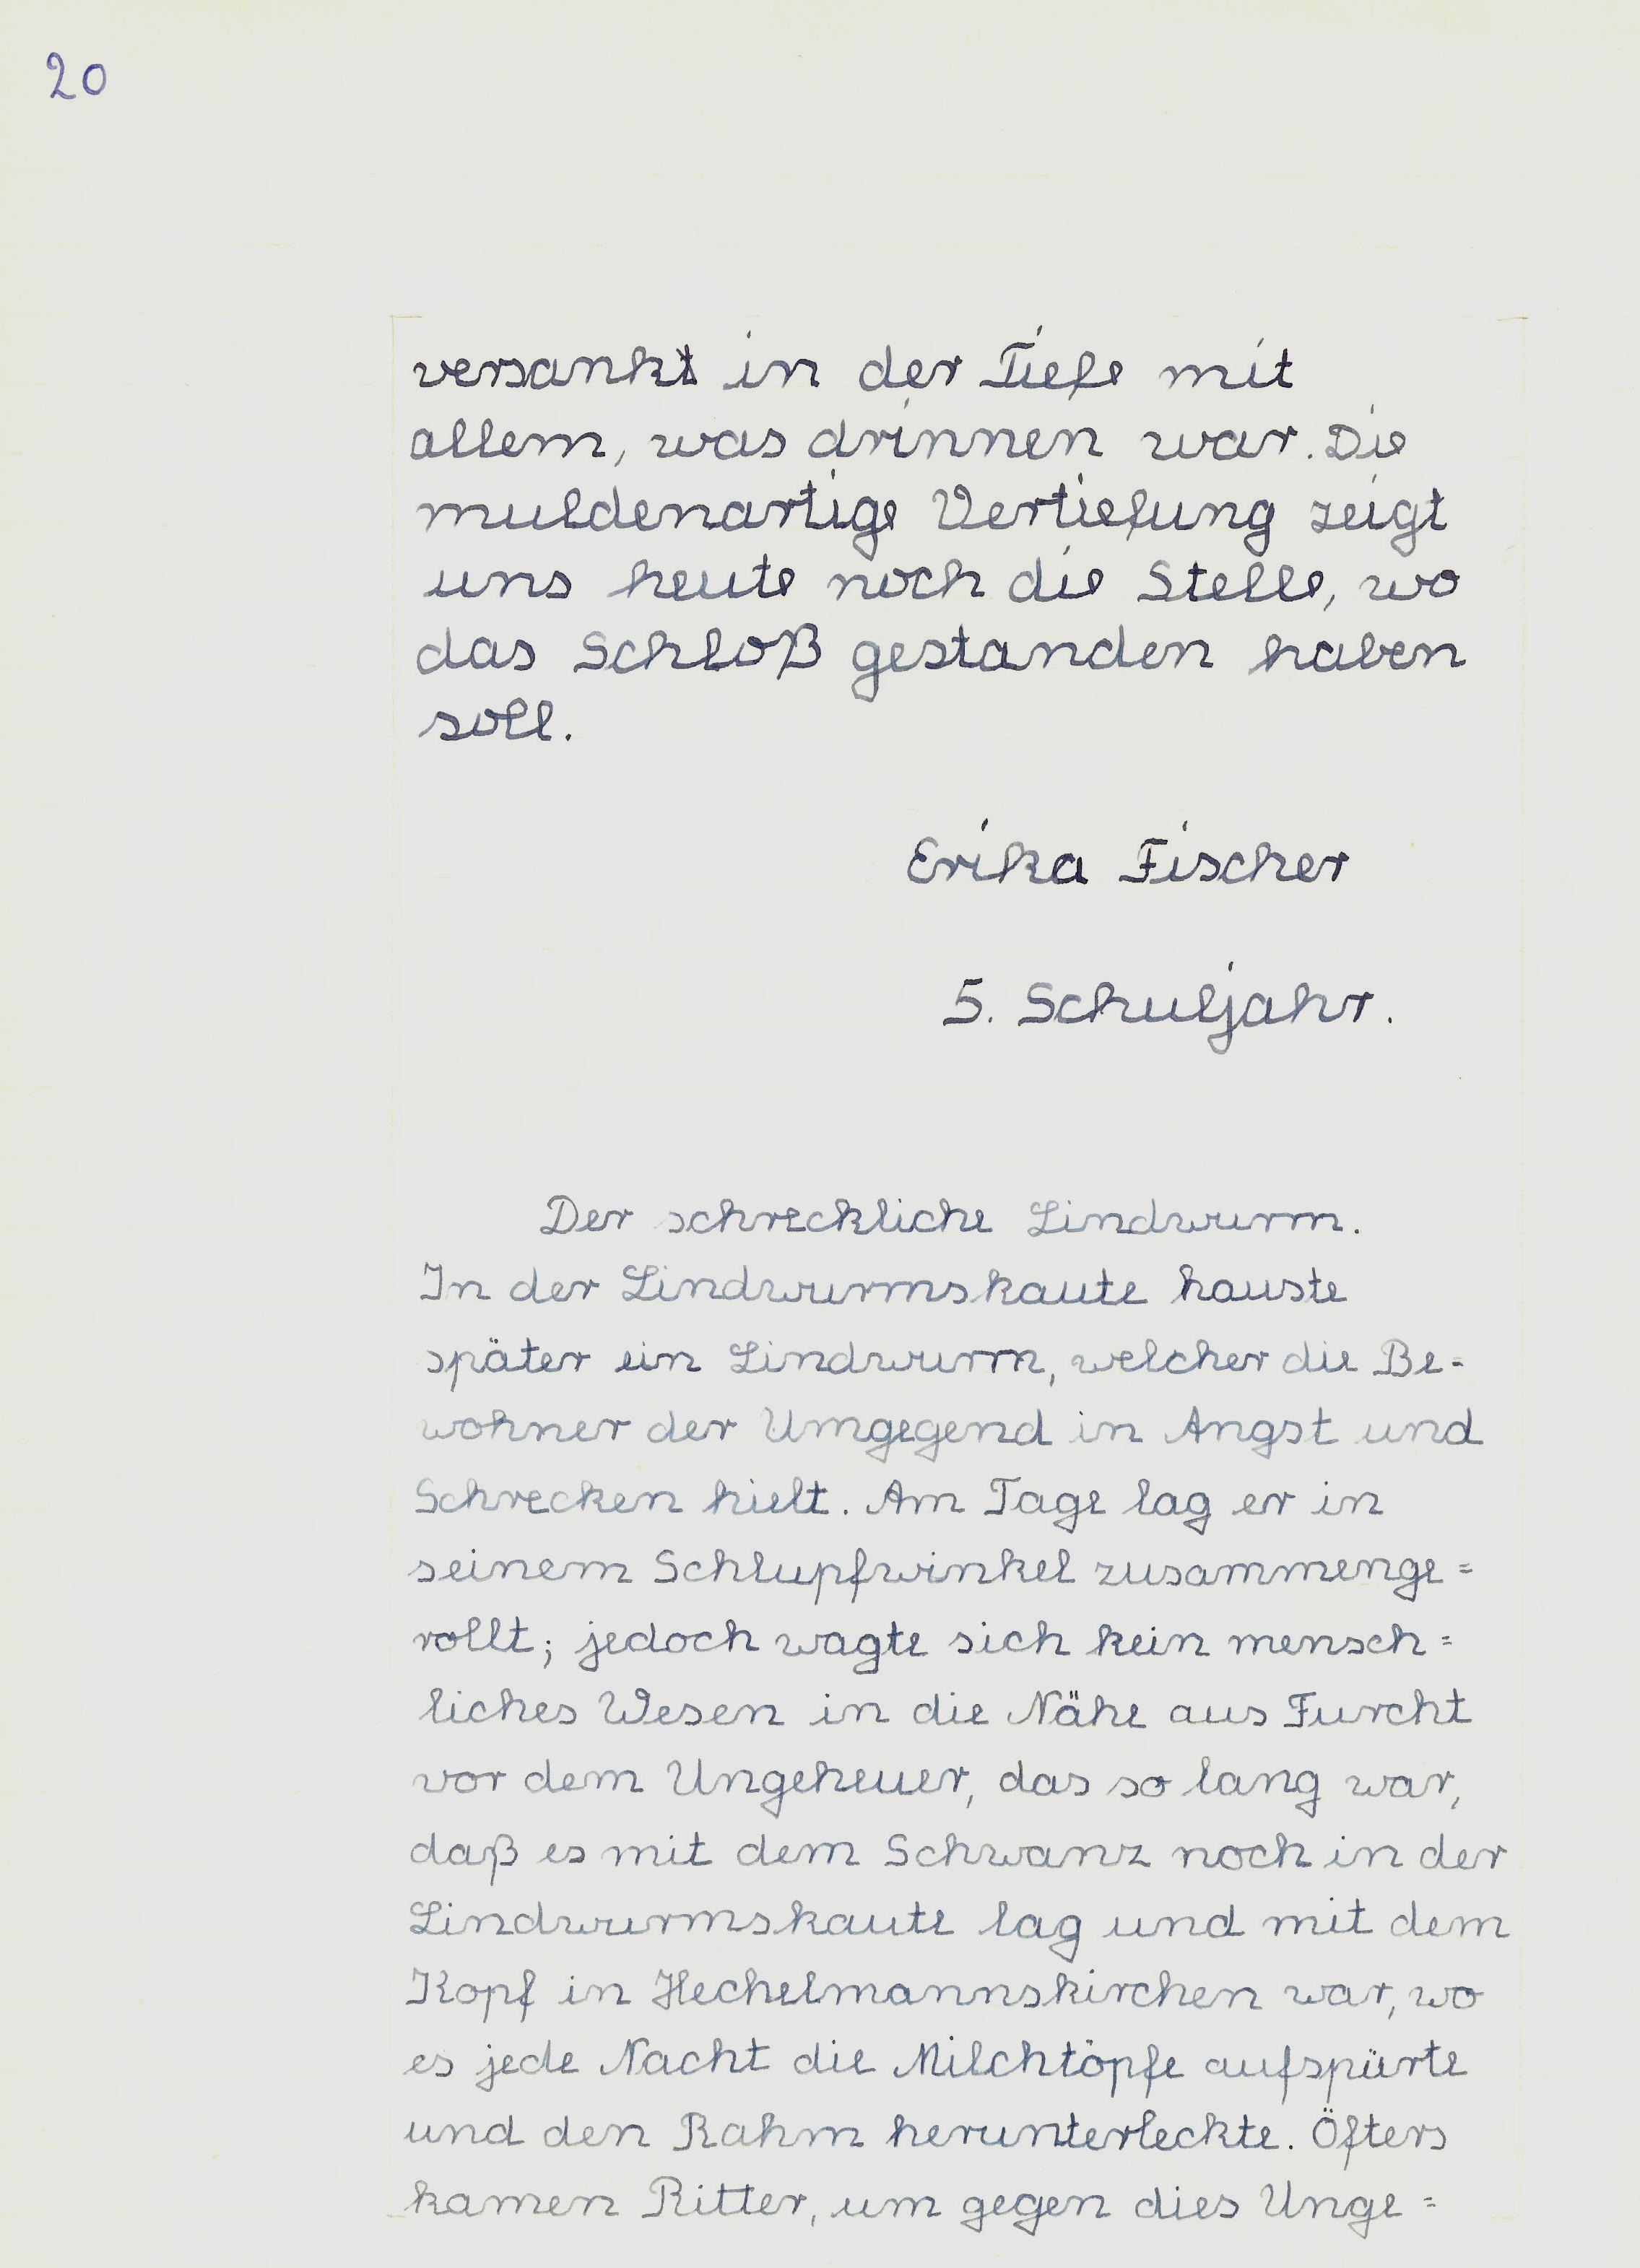 20
versank in der Tiefe mit
allem, was drinnen war. Die
muldenartige Vertiefung zeigt
uns heute noch die Stelle, wo
das Schloß gestanden haben
soll.
Erika Fischer
5. Schuljahr.
Der schreckliche Lindwurm.
In der Lindwurmskaute hauste
später ein Lindwurm, welcher die Be-
wohner der Umgegend in Angst und
Schrecken hielt. Am Tage lag er in
seinem Schlupfwinkel zusammenge=
rollt; jedoch wagte sich kein mensch=
liches Wesen in die Nähe aus Furcht
vor dem Ungeheuer, das so lang war,
daß es mit dem Schwanz noch in der
Lindwurmskaute lag und mit dem
Kopf in Hechelmannskirchen war, wo
es jede Nacht die Milchtöpfe aufspürte
und den Rahm herunterleckte. Öfters
kamen Ritter, um gegen dies Unge=